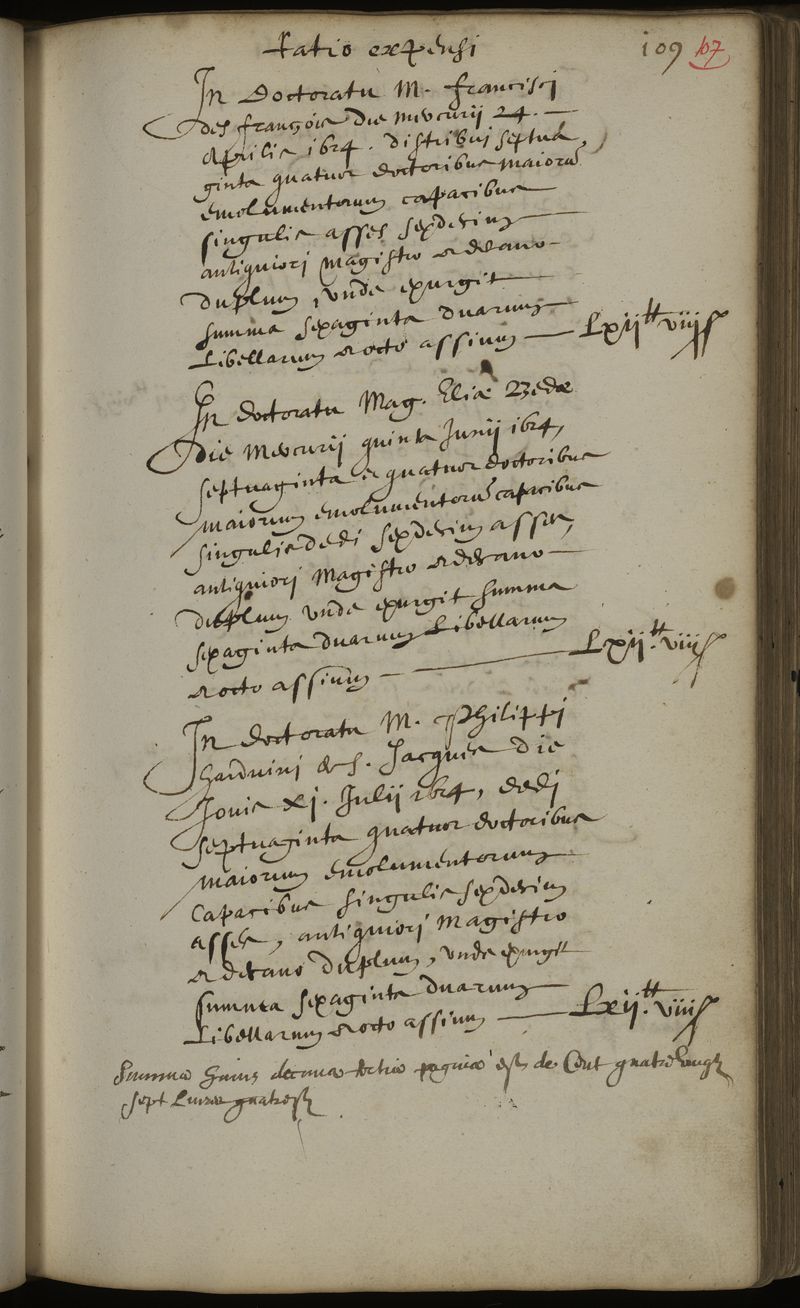 Ratio expensi 109 107
In Doctoratu M. francisci
des françois die mercurij 24.
Aprilis 1624. distribui septua
ginta quatuor doctoribus maiorū
emolumentorum capacibus
singulis asses sexdecim
antiquiori magistro et decano
duplum, unde exurgit
summa sexaginta duarum
Libellarum et octo assium — Lxij.tt viijs
In doctoratu Mag. Eliæ Bedæ
die mercurij quinta Junij 1624,
septuaginta et quatuor doctoribus
maiorum emolumentorū capacibus
singulis dedi sexdecim asses,
antiquiori magistro et decano
duplum unde exurgit summa
sexaginta duarum Libellarum
et octo assium — Lxij.tt viijs
In doctoratu M. Philippi
harduini de s. Jacques die
Jovis xj. Julij 1624, dedi
septuaginta quatuor doctoribus
maiorum emolumentorum
capacibus singulis sexdecim
asses, antiquiori magistro
et decano duplum, unde exurgit
summa sexaginta duarum
Libellarum et octo assium — Lxij.tt viijs
Summa huius paginæ est de Cent quatre vingt
sept Livres quatre s